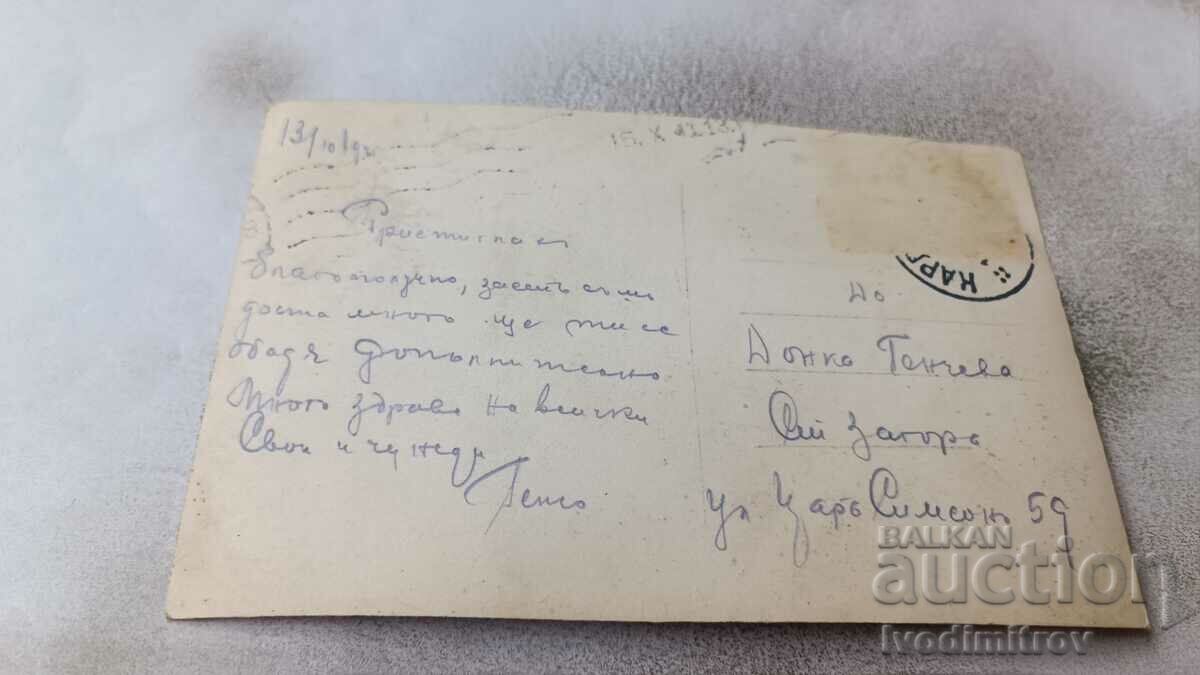 13/10/942
15.X.42.18
Пристигнах
благополучно, засега съмъ
доста много ще ти се
обадя допълнително
Много здраве на всички
Свои и чужди
Генчо
КАРЛ
До
Донка Генчева
Ст Загора
ул Царь Симеонъ 59
BALKAN
auction
Ivodimitrov